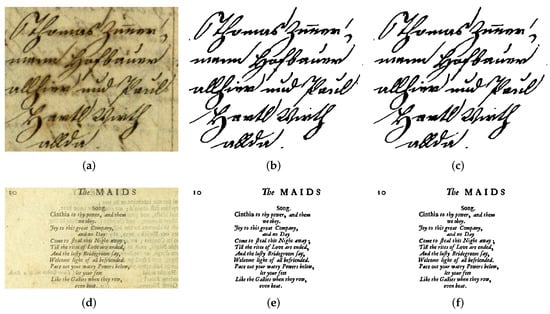 Thomas Zim̄er,
mann Hofbauer
allhier und Paul
Hartl Wirth
allda.
(a)
Thomas Zim̄er,
mann Hofbauer
allhier und Paul
Hartl Wirth
allda.
(b)
Thomas Zim̄er,
mann Hofbauer
allhier und Paul
Hartl Wirth
allda.
(c)
10 The MAIDS
Song.
Cinthia to thy power, and them
we obey.
Joy to this great Company,
and no Day
Come to ſteal this Night away;
Till the rites of Love are ended,
And the luſty Bridegroom say,
Welcome light of all befriended.
Pace out your watry Powers below,
let your feet
Like the Gallies when they row,
even beat.
(d)
10 The MAIDS
Song.
Cinthia to thy power, and them
we obey.
Joy to this great Company,
and no Day
Come to ſteal this Night away;
Till the rites of Love are ended,
And the luſty Bridegroom say,
Welcome light of all befriended.
Pace out your watry Powers below,
let your feet
Like the Gallies when they row,
even beat.
(e)
10 The MAIDS
Song.
Cinthia to thy power, and them
we obey.
Joy to this great Company,
and no Day
Come to ſteal this Night away;
Till the rites of Love are ended,
And the luſty Bridegroom say,
Welcome light of all befriended.
Pace out your watry Powers below,
let your feet
Like the Gallies when they row,
even beat.
(f)